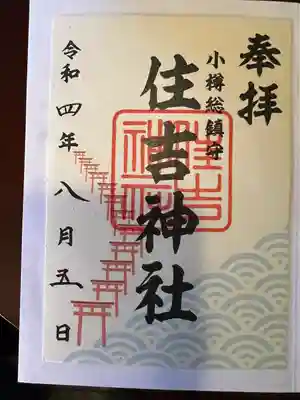 奉拝
小樽総鎮守
住吉神社
令和四年八月五日